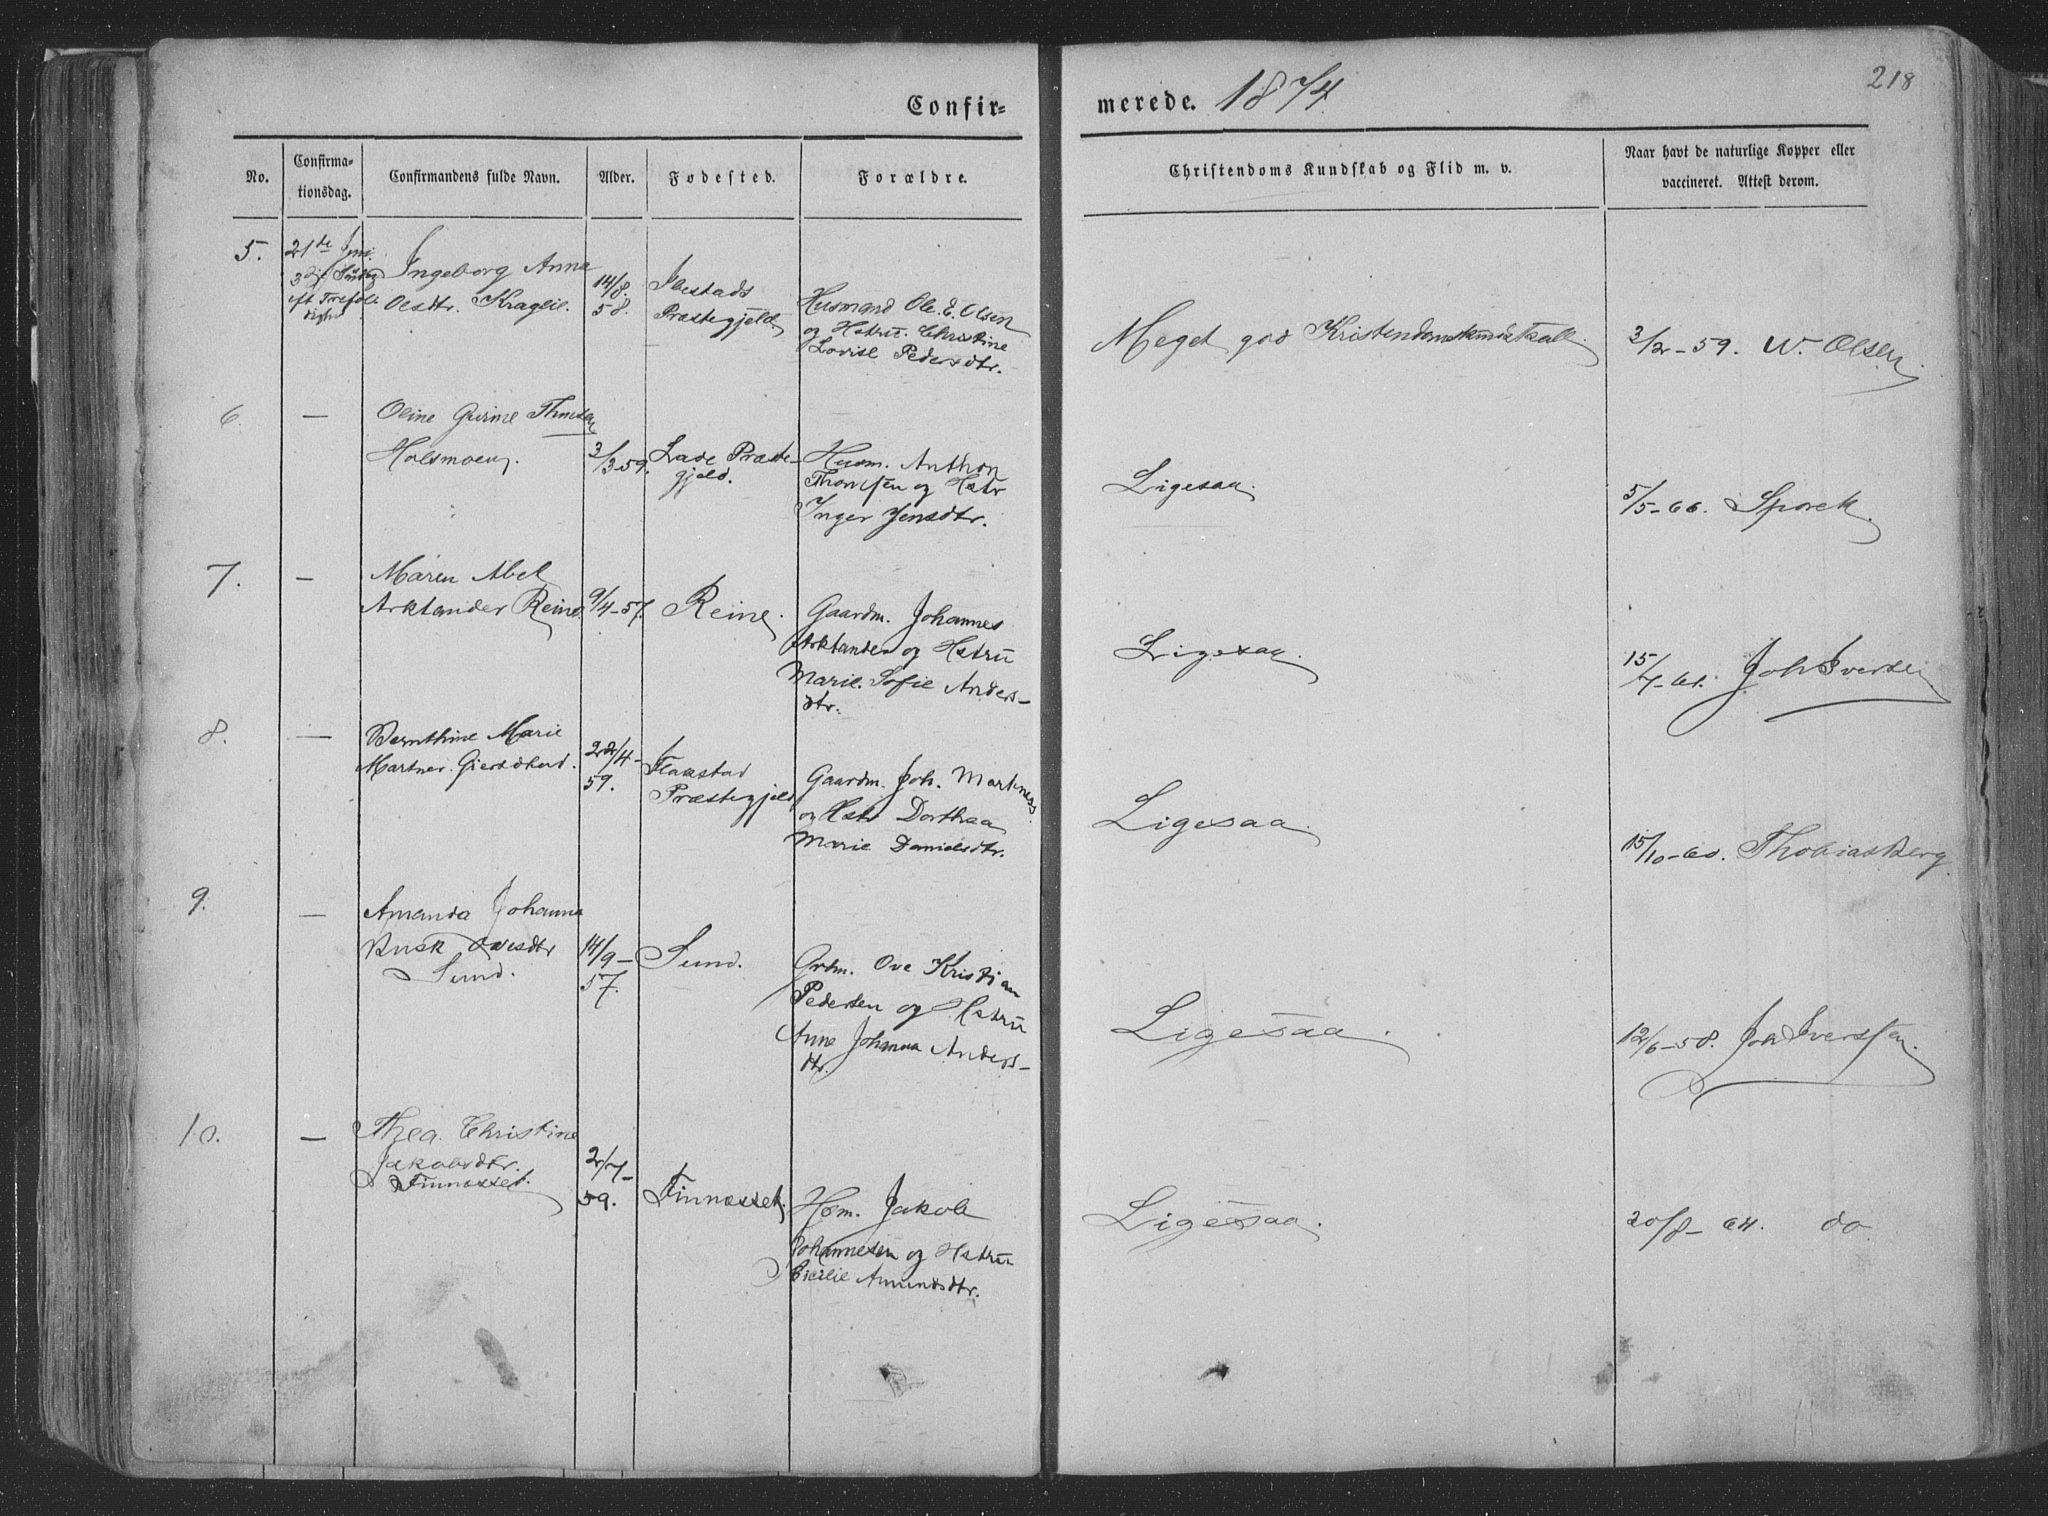 Confir=
merede. 1874
218
No.
Confirma=
tionsdag.
Confirmandens fulde Navn.
Alder.
Fødested.
Forældre.
Christendoms Kundskab og Flid m. v.
Naar havt de naturlige Kopper eller
vaccineret. Attest derom.
5.
21de Juni
3die Søndag
eft Trefol=
dighed
Ingeborg Anna
Olsdtr.
14/8.
58.
Ibestads
Præstegjeld
Husmand Ole E. Olsen
og Hstru. Christine
Lovise Pedersdtr.
Meget god Kristendomskundskab.
3/2-59. W. Olsen
6.
—
Oline Gurine
Holsmoen.
3/3-59.
Lade Præste-
gjeld.
Husm. Anthon
Thomsen og Hstr
Inger Jensdtr.
Ligesaa.
5/5-66. Sporck.
7.
—
Maren Abel
Arktander Reine
9/4-57.
Reine.
Gaardm. Johannes
Arktander og Hstru
Marie Sofie Anders-
dtr.
Ligesaa.
15/7-61. Joh Iversen
8.
—
Bernthine Marie
Martner.
22/4-
59.
Flakstad
Præstegjeld
Gaardm. Joh. Martness
og Hstr Dorthea
Marie Danielsdtr.
Ligesaa.
15/10-60. Thobias Berg
9.
—
Amanda Johanna
Busk Ovesdtr
Sund.
14/9-
57.
Sund.
Grdm. Ove Kristian
Pedersen og Hstru
Anne Johanna Anders-
dtr.
Ligesaa.
12/6-58. Joh Iverssen.
10.
—
Thea Christine
Jakobsdtr.
Finnæsset.
2/7-
59.
Finnæsset.
Hsm. Jakob
Johannesen og Hstru
Cicilie Amundsdtr.
Ligesaa.
20/8-64. do.